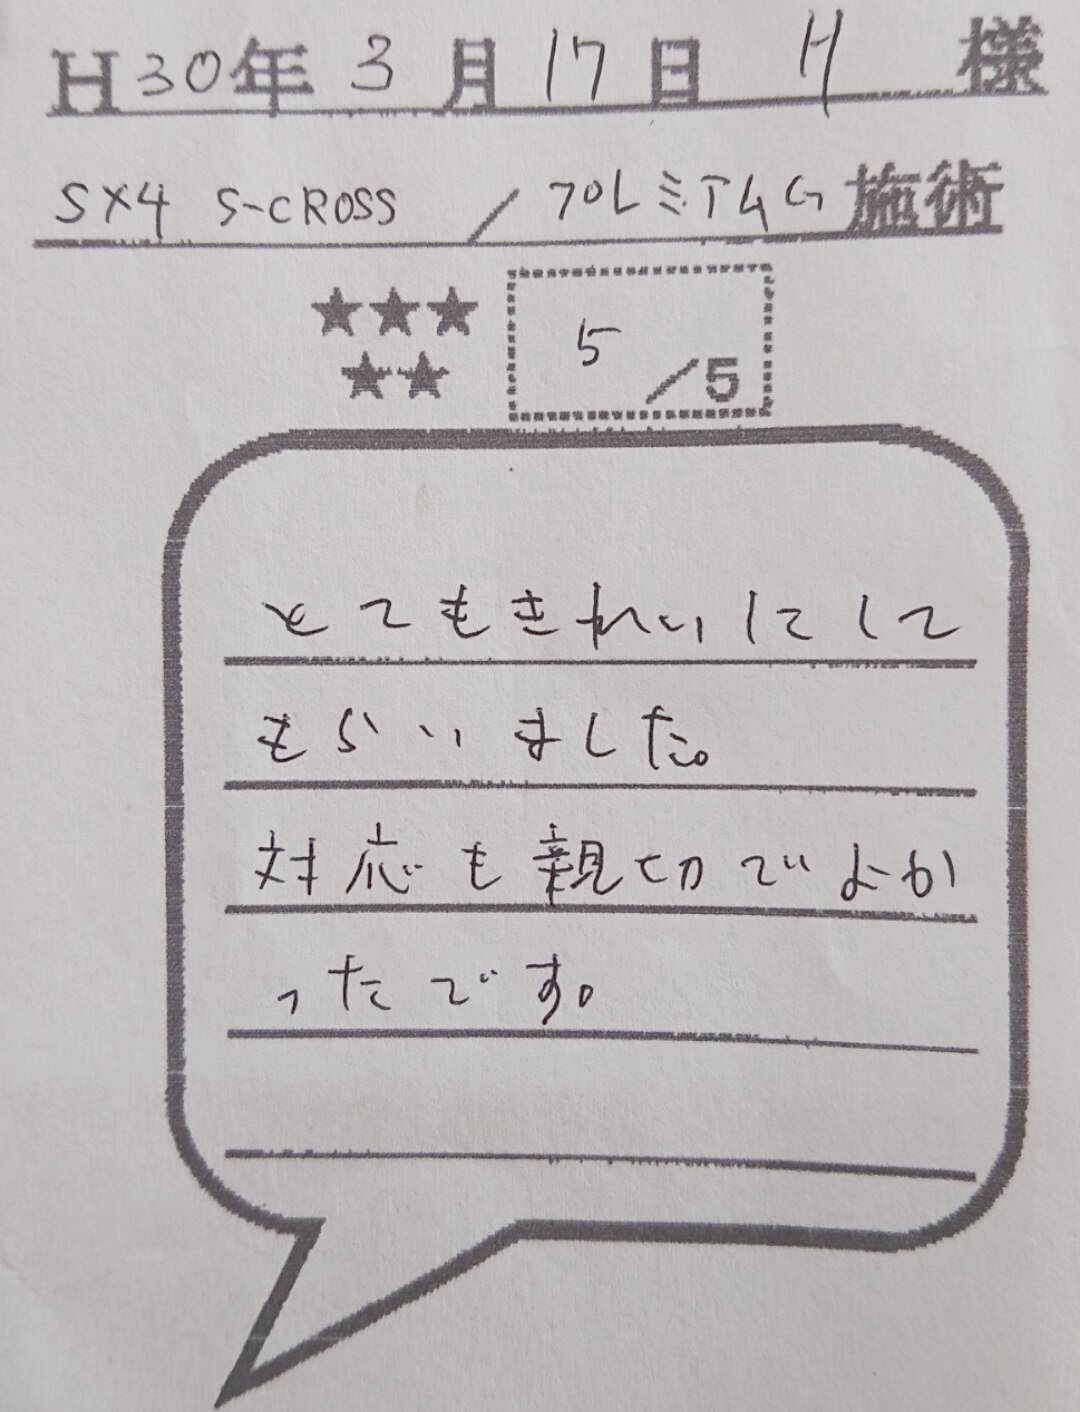 H30年 3月17日 H 様
SX4 S-CROSS / プレミアムG 施術
★★★
★★
5/5
とてもきれいにして
もらいました。
対応も親切でよか
ったです。